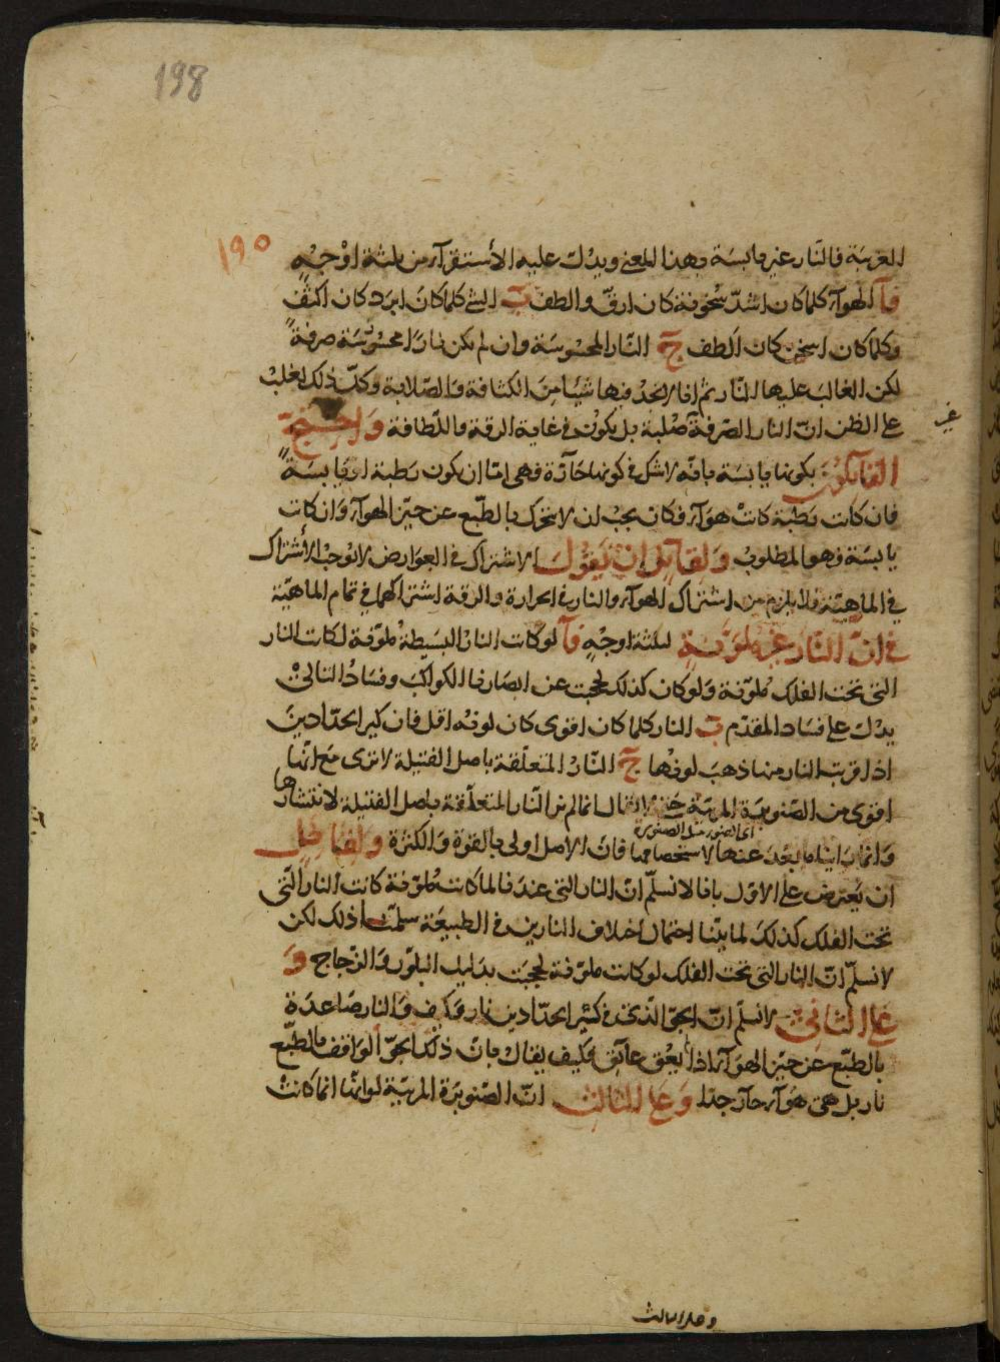 198
١٩٥
الغريبة فالنار غير يابسة بهذا المعنى ويدل عليه الأستقرآء من ثلثة اوجه
آ الهوآء كلما كان اشد سخونة كان ارق والطف ب الشئ كلما كان ابرد كان اكثف
وكلما كان اسخن كان الطف ج النار المحسوسة وان لم يكن نارا محسوسة صرفة
لكن الغالب عليها النار ثم انا لا نجد فيها شيئا من الكثافة والصلابة وكل ذلك يغلب
على الظن ان النار الصرفة صلبة بل يكون في غاية الرقة واللطافة واحتج
غير
القائلون بكونها يابسة بانه لا شك في كونها حارة فهى اما ان يكون رطبة او يابسة
فان كانت رطبة كانت هوآء فكان يجب ان لا تتحرك بالطبع عن حيز الهوآء وان كانت
يابسة فهو المطلوب ولقايل ان يقول الاشتراك في العوارض لا توجب الأشتراك
في الماهية فلا يلزم من اشتراك الهوآء والنار في الحرارة والرقة اشتراكهما في تمام الماهية
في ان النار غير ملونة لثلثة اوجه آ لو كانت النار البسيطة ملونة لكانت النار
التى تحت الفلك ملونة ولو كان كذلك لحجبت عن ابصارنا الكواكب وفساد التالى
يدل على فساد المقدم ب النار كلما كان اقوى كان لونه اقل فان كير الحدادين
اذا قربت النار منها ذهب لونها ج النار المتعلقة باصل الفتيلة لا ترى مع انها
اقوى من الصنوبرة المرئية لا يقال انما لم تر النار المتعلقة باصل الفتيلة لانتشارها
اى الصنور مثل الصنوبرة
وانما راينا ما بعد عنها لاستحصافها فان الاصل اولى بالقوة والكثرة ولقايل
ان يعترض على الاول بانا لا نسلم ان النار التى عندنا لما كانت ملونة كانت النار التى
تحت الفلك كذلك لما بينا احتمال اختلاف النارين في الطبيعة سلمنا ذلك لكن
لا نسلم ان النار التى تحت الفلك لو كانت ملونة لحجبت بدليل البلور والزجاج و
على الثانى لا نسلم ان الجو الذى في كير الحدادين نار وكيف والنار صاعدة
بالطبع عن حيز الهوآء اذا لم يعق عائق فكيف يقال بان ذلك الجو الواقف بالطبع
نار بل هى هوآء حار جدا وعلى الثالث ان الصنوبرة المرئية لو انها انما كانت
وعلى الثالث